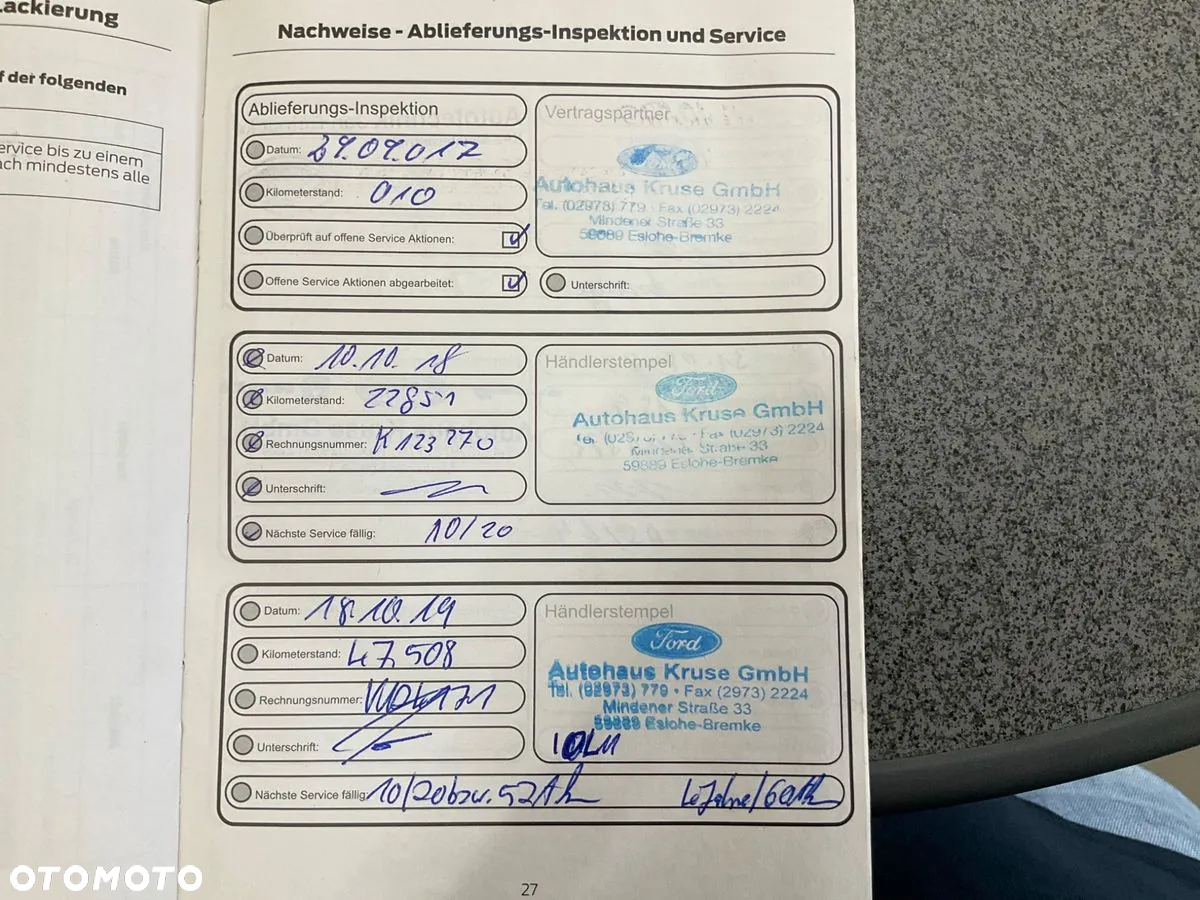 ackierung
f der folgenden
ervice bis zu einem
ach mindestens alle
Nachweise - Ablieferungs-Inspektion und Service
Ablieferungs-Inspektion
Datum: 29.09.017
Kilometerstand: 010
Überprüft auf offene Service Aktionen:
Offene Service Aktionen abgearbeitet:
Vertragspartner
Autohaus Kruse GmbH
Tel. (02973) 779 · Fax (02973) 2224
Mindener Straße 33
59889 Eslohe-Bremke
Unterschrift:
Datum: 10.10.18
Kilometerstand: 22851
Rechnungsnummer: K123270
Unterschrift:
Nächste Service fällig: 10/20
Händlerstempel
Ford
Autohaus Kruse GmbH
Fax (02973) 2224
33
59889 Eslohe-Bremke
Datum: 18.10.19
Kilometerstand: 47508
Rechnungsnummer:
Unterschrift:
Nächste Service fällig: 10/20 bzw.
Händlerstempel
Ford
Autohaus Kruse GmbH
Tel. (02973) 779 • Fax (2973) 2224
Mindener Straße 33
59889 Eslohe-Bremke
27
OTOMOTO